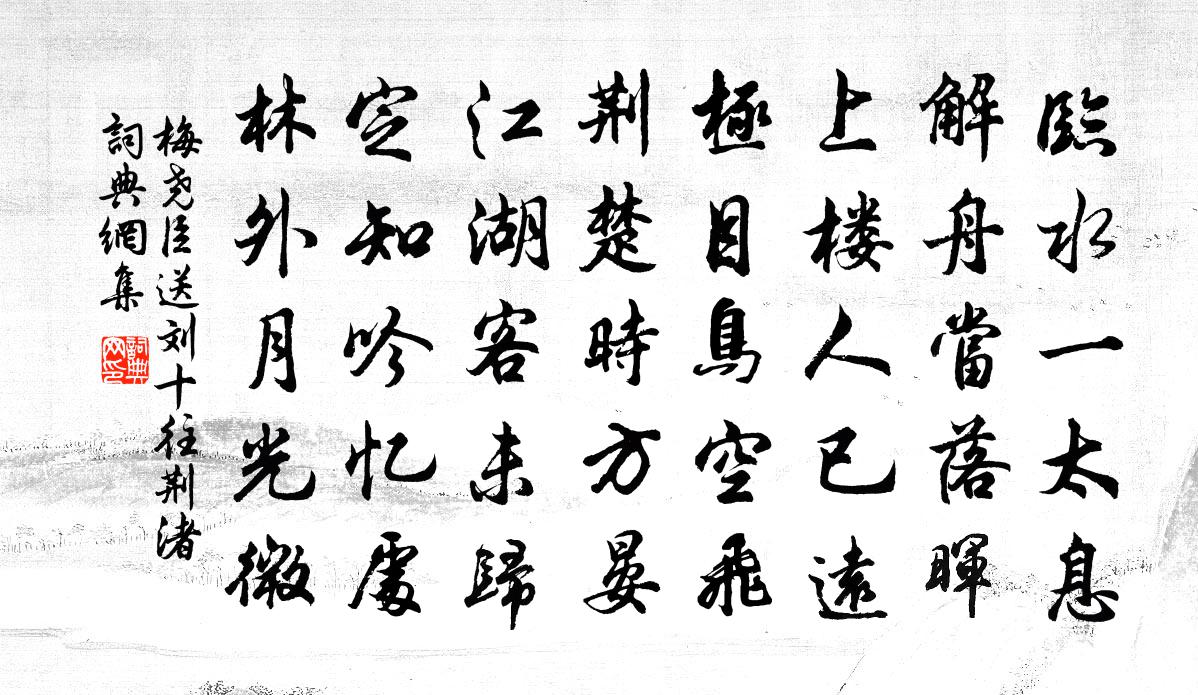 臨水一太息
解舟當落暉
上楼人已遠
極目鳥空飛
荆楚時方晏
江湖客未歸
定知吟忆處
林外月光微
梅尧臣送刘十往荆渚
詞典網集